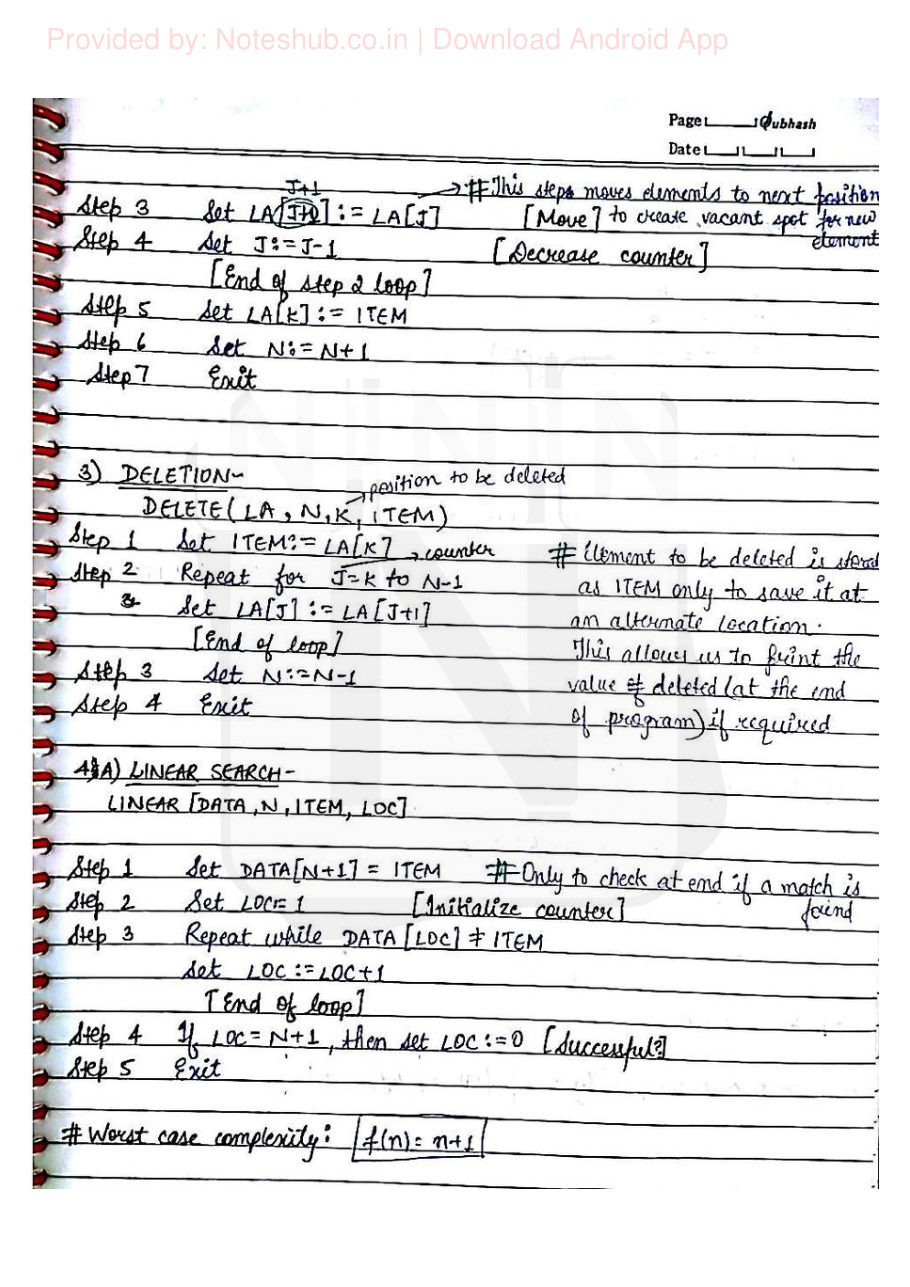 Provided by: Noteshub.co.in | Download Android App
Page Subhash
Date
J+1
Step 3 Set LA[J+1] := LA[J] [Move] # This steps moves elements to next position
to create vacant spot for new
element
Step 4 Set J:=J-1 [Decrease counter]
[End of step 2 loop]
Step 5 Set LA[K] := ITEM
Step 6 Set N:=N+1
Step 7 Exit
3) DELETION-
position to be deleted
DELETE(LA, N, K, ITEM)
Step 1 Set ITEM:= LA[K]
counter
Step 2 Repeat for J=K to N-1
Set LA[J] := LA[J+1]
[End of loop]
Step 3 Set N:=N-1
Step 4 Exit
# Element to be deleted is stored
as ITEM only to save it at
an alternate location.
This allows us to print the
value of deleted (at the end
of program) if required
4)A) LINEAR SEARCH-
LINEAR [DATA, N, ITEM, LOC]
Step 1 Set DATA[N+1] = ITEM # Only to check at end if a match is
found
Step 2 Set LOC= 1 [Initialize counter]
Step 3 Repeat while DATA[LOC] ≠ ITEM
Set LOC:=LOC+1
[End of loop]
Step 4 If LOC=N+1, then set LOC:=0 [Successful?]
Step 5 Exit
# Worst case complexity: f(n)= n+1